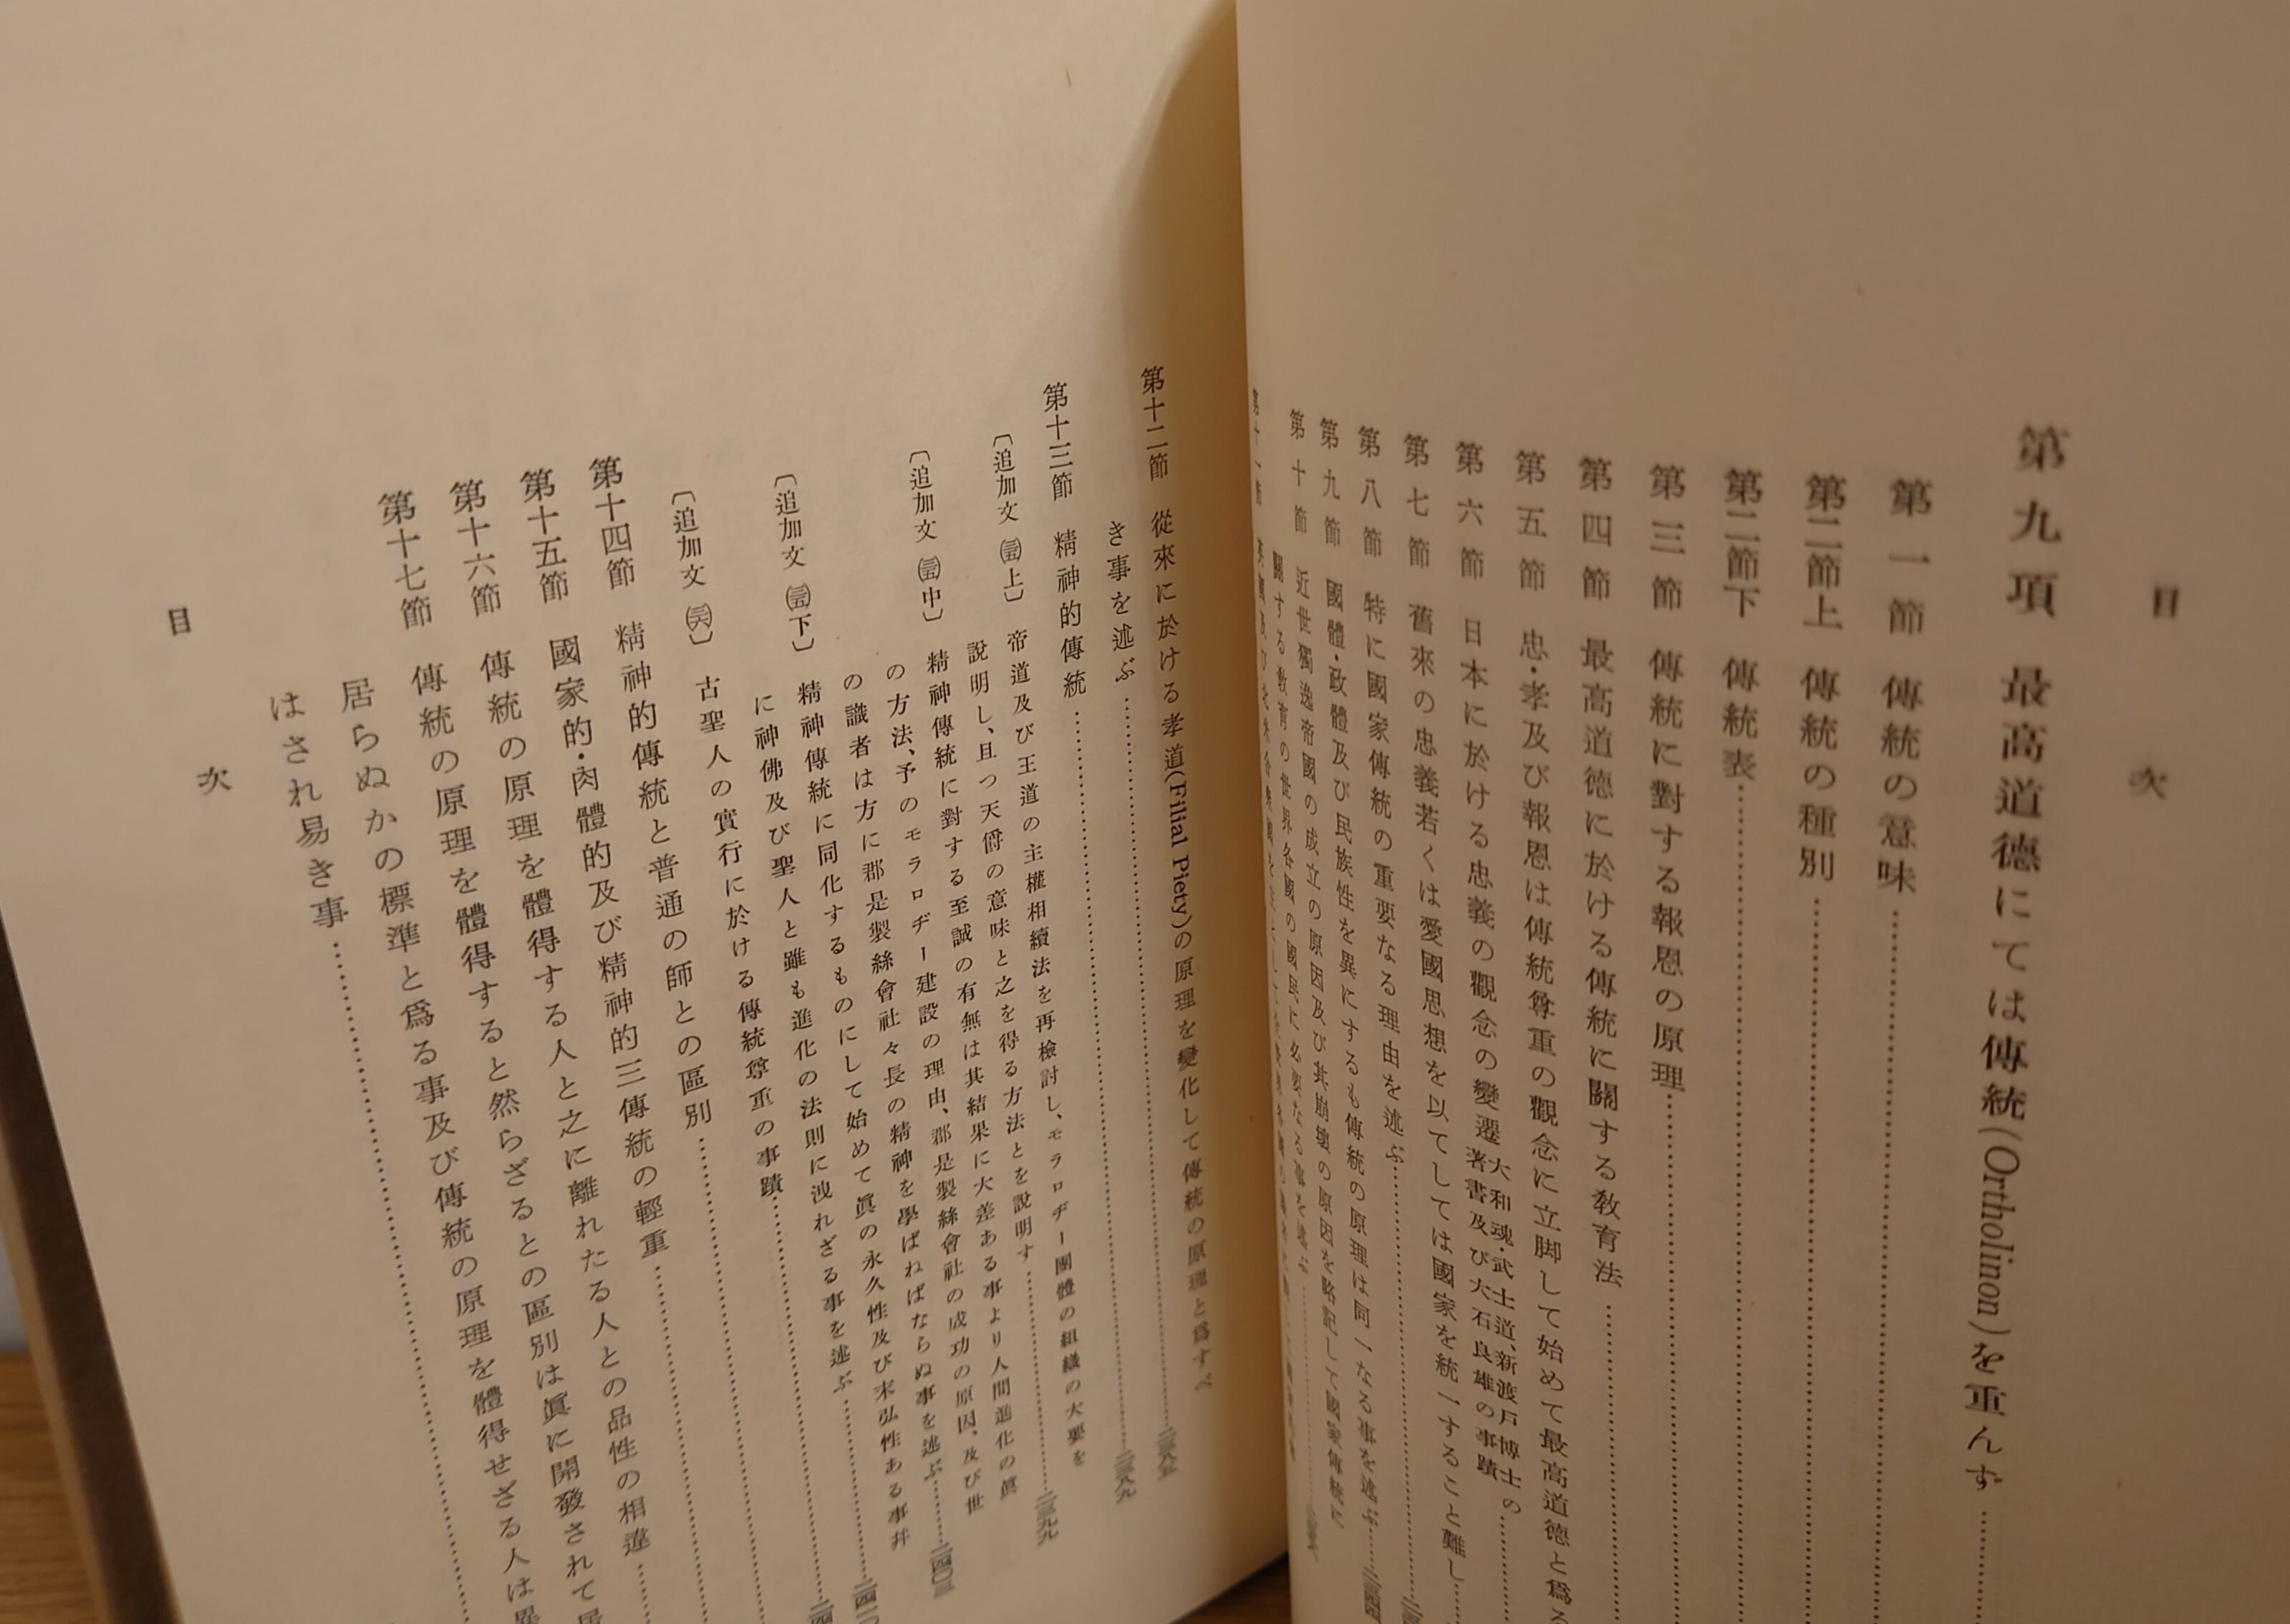 目次
第九項　最高道德にては傳統(Ortholinon)を重んず
第一節　傳統の意味
第二節上　傳統の種別
第二節下　傳統表
第三節　傳統に對する報恩の原理
第四節　最高道德に於ける傳統に關する敎育法
第五節　忠・孝及び報恩は傳統尊重の觀念に立脚して始めて最高道德と爲る
第六節　日本に於ける忠義の觀念の變遷　大和魂・武士道、新渡戶博士の
著書及び大石良雄の事蹟
第七節　舊來の忠義若くは愛國思想を以てしては國家を統一すること難し
第八節　特に國家傳統の重要なる理由を述ぶ
第九節　國體・政體及び民族性を異にするも傳統の原理は同一なる事を述ぶ
第十節　近世獨逸帝國の成立の原因及び其崩壞の原因を略記して國家傳統に
關する敎育の世界各國の國民に必要なる事を述ぶ
第十一節
第十二節　從來に於ける孝道(Filial Piety)の原理を變化して傳統の原理と爲すべ
き事を述ぶ
第十三節　精神的傳統
〔追加文 上〕　帝道及び王道の主權相續法を再檢討し、モラロヂー團體の組織の大要を
說明し、且つ天爵の意味と之を得る方法とを說明す
〔追加文 中〕　精神傳統に對する至誠の有無は其結果に大差ある事より人間進化の眞
の方法、予のモラロヂー建設の理由、郡是製絲會社の成功の原因、及び世
の識者は方に郡是製絲會社々長の精神を學ばねばならぬ事を述ぶ
〔追加文 下〕　精神傳統に同化するものにして始めて眞の永久性及び末弘性ある事幷
に神佛及び聖人と雖も進化の法則に洩れざる事を述ぶ
〔追加文〕　古聖人の實行に於ける傳統尊重の事蹟
第十四節　精神的傳統と普通の師との區別
第十五節　國家的・肉體的及び精神的三傳統の輕重
第十六節　傳統の原理を體得する人と之に離れたる人との品性の相違
第十七節　傳統の原理を體得すると然らざるとの區別は眞に開發されて居
居らぬかの標準と爲る事及び傳統の原理を體得せざる人は異
はされ易き事
目次